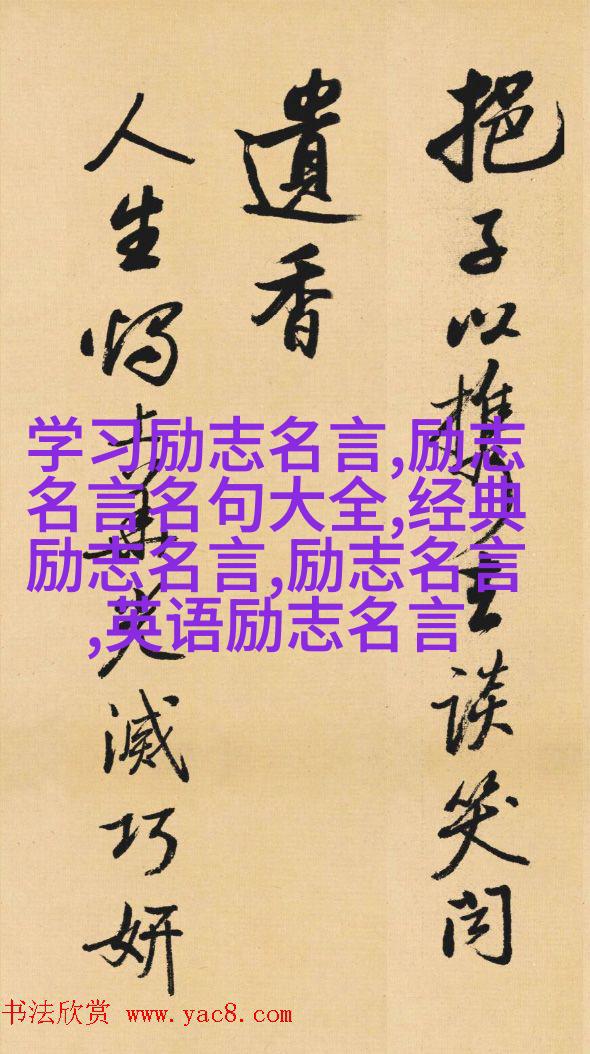 挹子以攜去談笑聞
遺香
人生燭上華光滅巧妍
学习励志名言,励志
名言名句大全,经典
励志名言,励志名言
,英语励志名言
书法欣赏 www.yac8.com